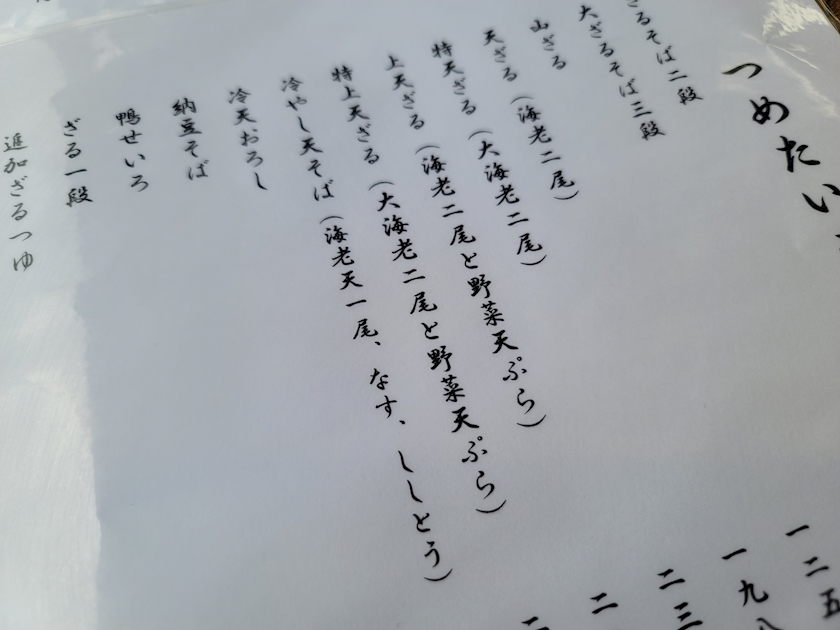 つめたい
ざるそば二段
大ざるそば三段
山ざる
天ざる(海老二尾)
特天ざる(大海老二尾)
上天ざる(海老二尾と野菜天ぷら)
特上天ざる(大海老二尾と野菜天ぷら)
冷やし天そば(海老天一尾、なす、ししとう)
冷天おろし
納豆そば
鴨せいろ
ざる一段
追加ざるつゆ
一二五
一九八
二三
二
二